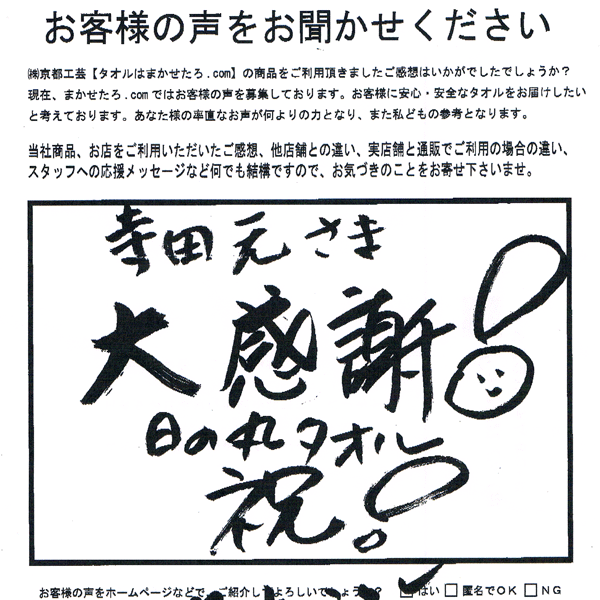 お客様の声をお聞かせください
㈱京都工芸【タオルはまかせたろ.com】の商品をご利用頂きましたご感想はいかがでしたでしょうか？
現在、まかせたろ.comではお客様の声を募集しております。お客様に安心・安全なタオルをお届けしたい
と考えております。あなた様の率直なお声が何よりの力となり、また私どもの参考となります。
当社商品、お店をご利用いただいたご感想、他店舗との違い、実店舗と通販でご利用の場合の違い、
スタッフへの応援メッセージなど何でも結構ですので、お気づきのことをお寄せ下さいませ。
寺田元さま
大感謝!
日の丸タオル
祝!
お客様の声をホームページなどで、ご紹介してよろしいでしょうか？ ☑はい □匿名でOK □NG